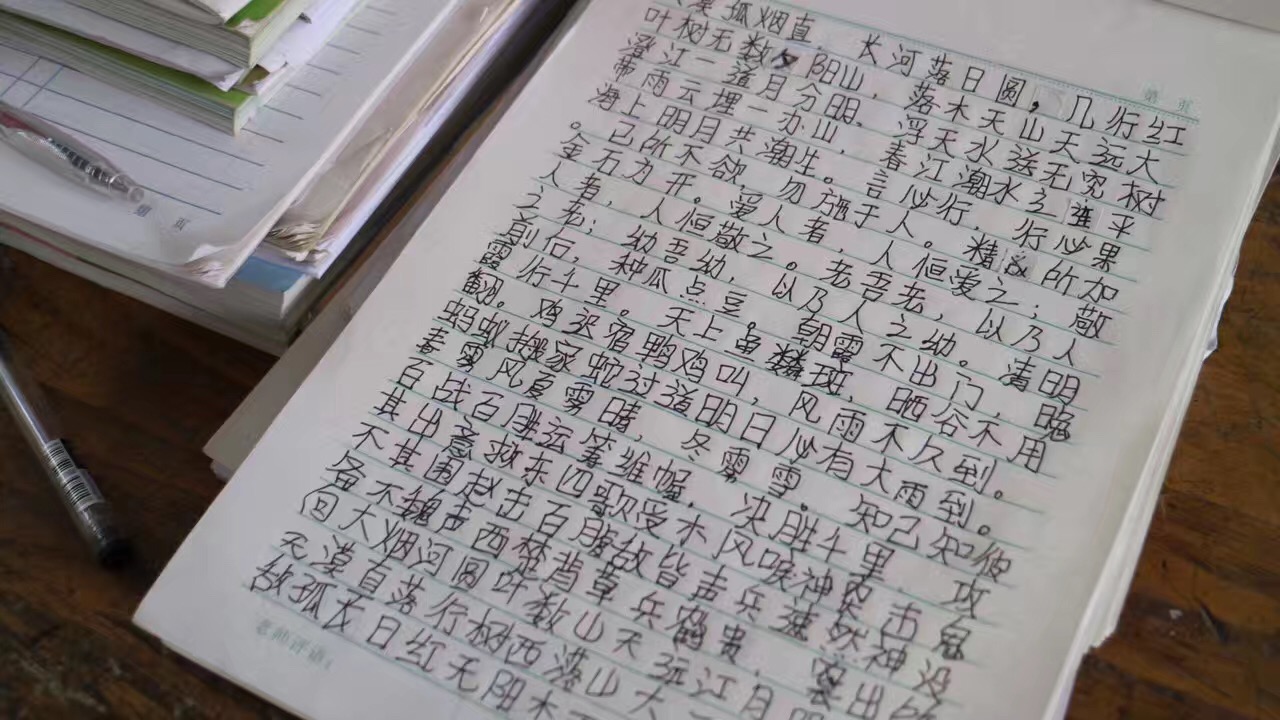 漠孤烟直，长河落日圆，几行红
叶树无数夕阳山，落木天山天远大
澄江一落月分明，浮天水送无穷树
带雨云埋一办山，春江潮水连平
海上明月共潮生。言必行，行必果
。己所不欲，勿施于人。精诚所加
金石为开。爱人者，人恒爱之；敬
人者，人恒敬之。老吾老，以乃人
之老；幼吾幼，以乃人之幼。清明
前后，种瓜点豆。朝霞不出门，晚
霞行千里。天上鱼鳞斑，晒谷不用
翻。鸡迟宿鸭鸡叫，风雨不久到。
蚂蚁搬家蛇过道明日必有大雨到。
春雾风夏雾晴，冬雾雪。知己知彼
百战百胜运筹维幄，决胜千里，攻
其出意救东四歌受木风唳神农击息
不其围赵击百胜故皆声兵速然神没
备不魏声西楚背草兵鹤贵，袭出所
回大烟河圆叶数山天远江月
无漠直落行树西落山大一
敌孤长日红无阳木
老师评语：
第 页
第 页